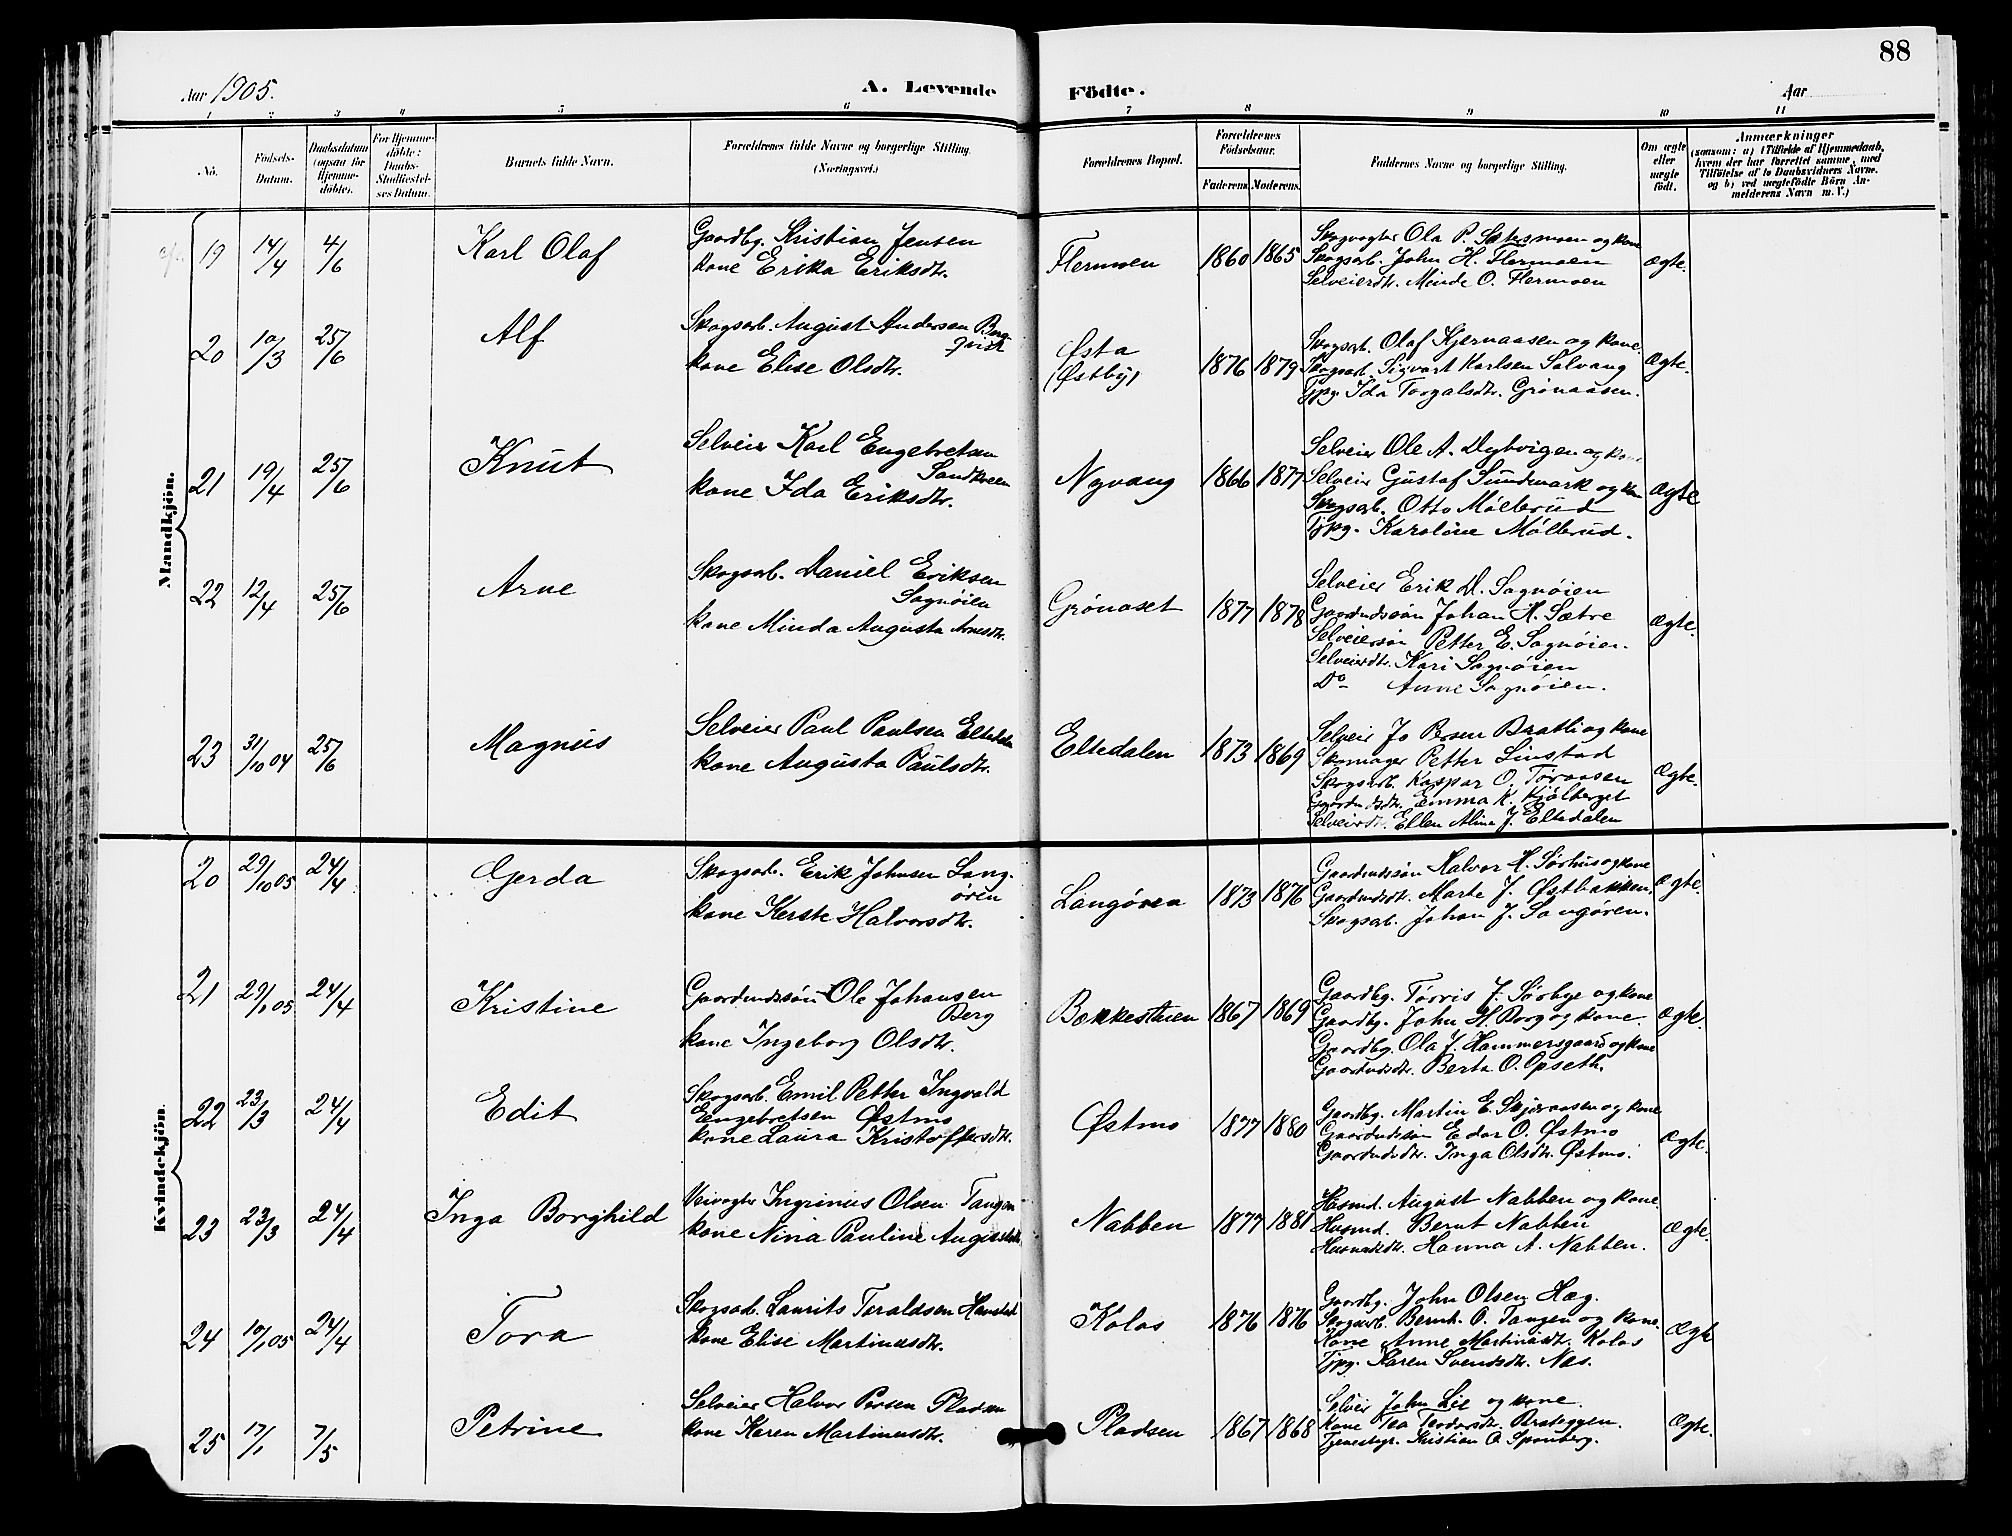 88
Aar 1905.
A. Levende Födte.
Aar
1 2 3 4 5 6 7 8 9 10 11
No.
Födsels-Datum.
Daabsdatum (ogsaa for Hjemme-döbte).
For Hjemme-döbte: Daabs-Stadfæstel-ses Datum.
Barnets fulde Navn.
Forældrenes fulde Navne og borgerlige Stilling. (Næringsvei.)
Forældrenes Bopæl.
Forældrenes Födselsaar.
Faderens. Moderens.
Faddernes Navne og borgerlige Stilling.
Om ægte eller uægte födt.
Anmærkninger
(saasom: a) i Tilfælde af Hjemmedaab, hvem der har forrettet samme, med Tilföielse af to Daabsvidners Navne. og b) ved uægtefödte Börn An-melderens Navn m. V.)
Mandkjön.
19 14/4 4/6 Karl Olaf
Gaardbg. Kristian Jensen
kone Erika Eriksdtr.
Flermoen 1860 1865
Skogvogter Ola P. Sætermoen og kone
Skogsarb. John H. Flermoen
Selveierdtr. Minde O. Flermoen
ægte.
20 10/3 25/6 Alf
Skogsarb. August Andersen Bergqvist
kone Elise Olsdtr.
Østa (Østby) 1876 1879
Skogsarb. Olaf Kjernaasen og kone.
Skogsarb. Sigvart Karlsen Solvang
Tjpg. Ida Torgalsdtr. Grønaasen.
Ægte.
21 19/4 25/6 Knut
Selveier Karl Engebretsen
Sandkveen
kone Ida Eriksdtr.
Nyvang 1866 1877
Selveier Ole A. Dybvigen og kone
Selveier Gustaf Sundmark og kone
Skogsarb. Otto Møllerud
Tjpg. Karoline Møllerud.
Ægte
22 12/4 25/6 Arne
Skogsarb. Daniel Eriksen
Sagnøien
kone Minda Augusta Arnesdtr.
Grønaset 1877 1878
Selveier Erik D. Sagnøien
Gaardmdssøn Johan H. Sætre
Selveiersøn Petter E. Sagnøien.
Selveierdtr. Kari Sagnøien
Do Anne Sagnøien.
Ægte.
23 31/10 04 25/6 Magnus
Selveier Paul Paulsen Eltedalen
kone Augusta Paulsdtr.
Eltedalen 1873 1869
Selveier Jo Persen Bratli og kone
Skomager Petter Linstad
Skogsarb. Kaspar O. Töraasen
Gaardmdsdtr. Emma K. Kjølberget
Selveierdtr. Ellen Alina J. Eltedalen
Ægte.
Kvindekjön.
20 29/10 05 24/4 Gerda
Skogsarb. Erik Johnsen Lang-
øren
kone Kerste Halvorsdtr.
Langøren 1873 1876
Gaardmdssøn Halvor H. Sørhus og kone
Gaardmdsdtr. Marte J. Østbakken.
Skogsarb. Johan J. Langøren.
Ægte.
21 29/1 05 24/4 Kristine
Gaardmdssøn Ole Johansen
Berg
kone Ingeborg Olsdtr.
Bækkestuen 1867 1869
Gaardbg. Törris J. Sørbye og kone
Gaardbg. John H. Borg og kone.
Gaardbg. Ola J. Hammersgaard og kone
Gaardmdsdtr. Berta O. Opseth.
Ægte.
22 23/3 24/4 Edit
Skogsarb. Emil Petter Ingvald
Engebretsen Østmo
kone Laura Kristoffersdtr.
Østmo 1877 1880
Gaardbg. Martin E. Skjæraasen og kone
Gaardmdssøn Edor O. Østmo
Gaardmdsdtr. Inga Olsdtr. Østmo.
Ægte.
23 23/3 24/4 Inga Borghild
Veivogter Ingrinus Olsen Tangen
kone Nina Pauline Augustsdtr.
Nabben 1877 1881
Husmd. August Nabben og kone.
Husmd. Bernt Nabben
Husmdsdtr. Hanna A. Nabben.
Ægte.
24 10/1 05 24/4 Tora
Skogsarb. Laurits Taraldsen Hanstad
kone Elise Martinusdtr.
Kolos 1876 1876
Gaardbg. John Olsen Hæg.
Skogsarb. Bernh. O. Tangen og kone.
Kone Anne Martinusdtr. Kolos
Tjpg. Karen Svendsdtr. Næs.
Ægte
25 17/1 7/5 Petrine
Selveier Halvor Persen Pladsen
kone Karen Martinusdtr.
Pladsen 1867 1868
Selveier John Lie og kone.
Kone Tea Teodorsdtr. Brateggen.
Tjenestegr. Kristian O. Sponberg.
Ægte.